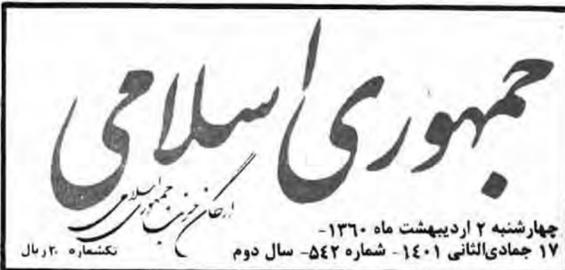 جمهوری اسلامی
ارگان حزب جمهوری اسلامی
چهارشنبه ۲ اردیبهشت ماه ۱۳۶۰-
۱۷ جمادی‌الثانی ۱٤۰۱- شماره ۵٤۲- سال دوم
تکشماره ۲۰ ریال